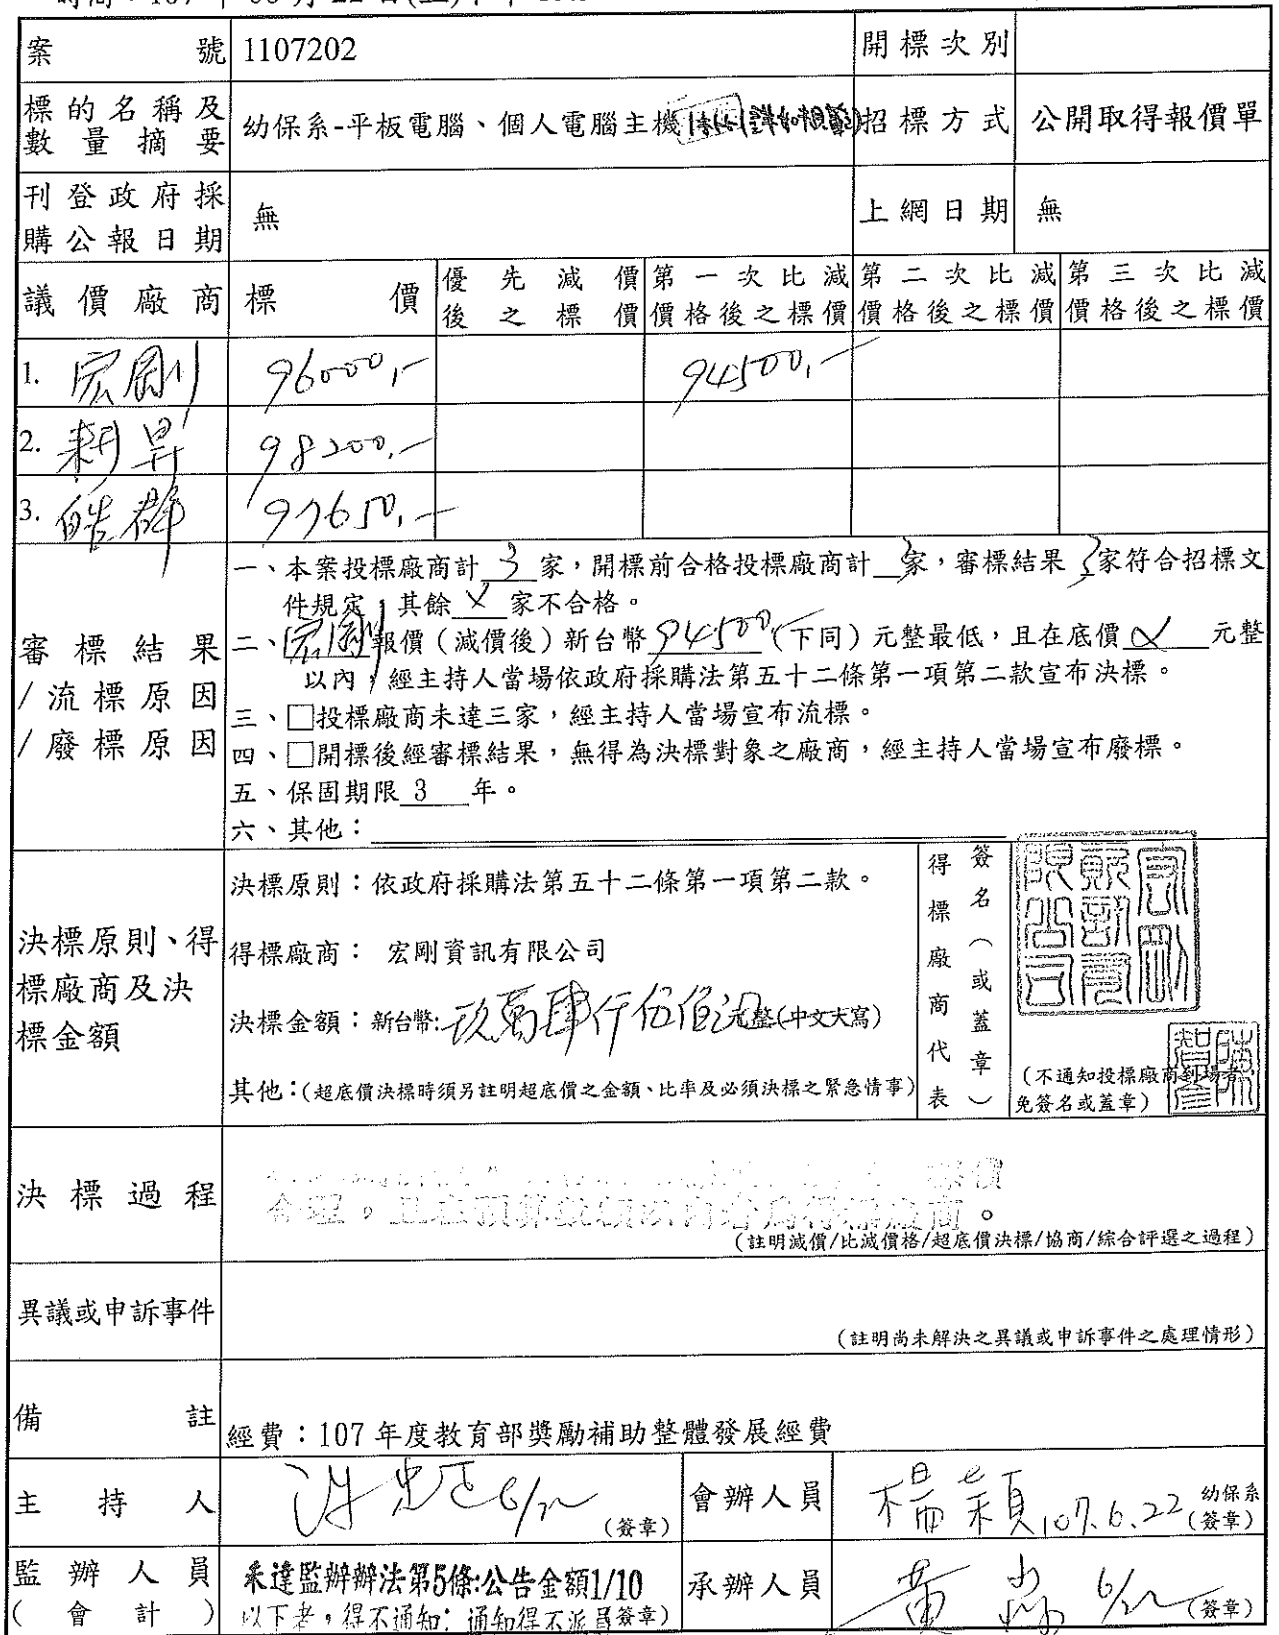 案號 1107202 開標次別
標的名稱及數量摘要 幼保系-平板電腦、個人電腦主機 招標方式 公開取得報價單
刊登政府採購公報日期 無 上網日期 無
議價廠商 標價 優先減價後之標價 第一次比減價格後之標價 第二次比減價格後之標價 第三次比減價格後之標價
1. 宏剛 96000,- 94500,-
2. 耕昇 98200,-
3. 皓群 97650,-
審標結果/流標原因/廢標原因
一、本案投標廠商計 3 家，開標前合格投標廠商計 3 家，審標結果 3 家符合招標文
件規定，其餘 X 家不合格。
二、宏剛報價（減價後）新台幣 94500 （下同）元整最低，且在底價 X 元整
以內，經主持人當場依政府採購法第五十二條第一項第二款宣布決標。
三、□投標廠商未達三家，經主持人當場宣布流標。
四、□開標後經審標結果，無得為決標對象之廠商，經主持人當場宣布廢標。
五、保固期限 3 年。
六、其他：
決標原則、得標廠商及決標金額
決標原則：依政府採購法第五十二條第一項第二款。
得標廠商： 宏剛資訊有限公司
決標金額：新台幣:玖萬肆仟伍佰元整(中文大寫)
其他：(超底價決標時須另註明超底價之金額、比率及必須決標之緊急情事)
得標廠商代表 簽名（或蓋章）
(不通知投標廠商到場者
免簽名或蓋章)
決標過程
標價
合理。且在預算數額以內者為得標廠商。
(註明減價/比減價格/超底價決標/協商/綜合評選之過程)
異議或申訴事件
(註明尚未解決之異議或申訴事件之處理情形)
備註 經費：107 年度教育部獎勵補助整體發展經費
主持人 6/22 (簽章) 會辦人員 楊 穎 107.6.22 幼保系 (簽章)
監辦人員(會計) 未達監辦辦法第5條:公告金額1/10
以下者，得不通知；通知得不派員簽章) 承辦人員 黃 6/22 (簽章)